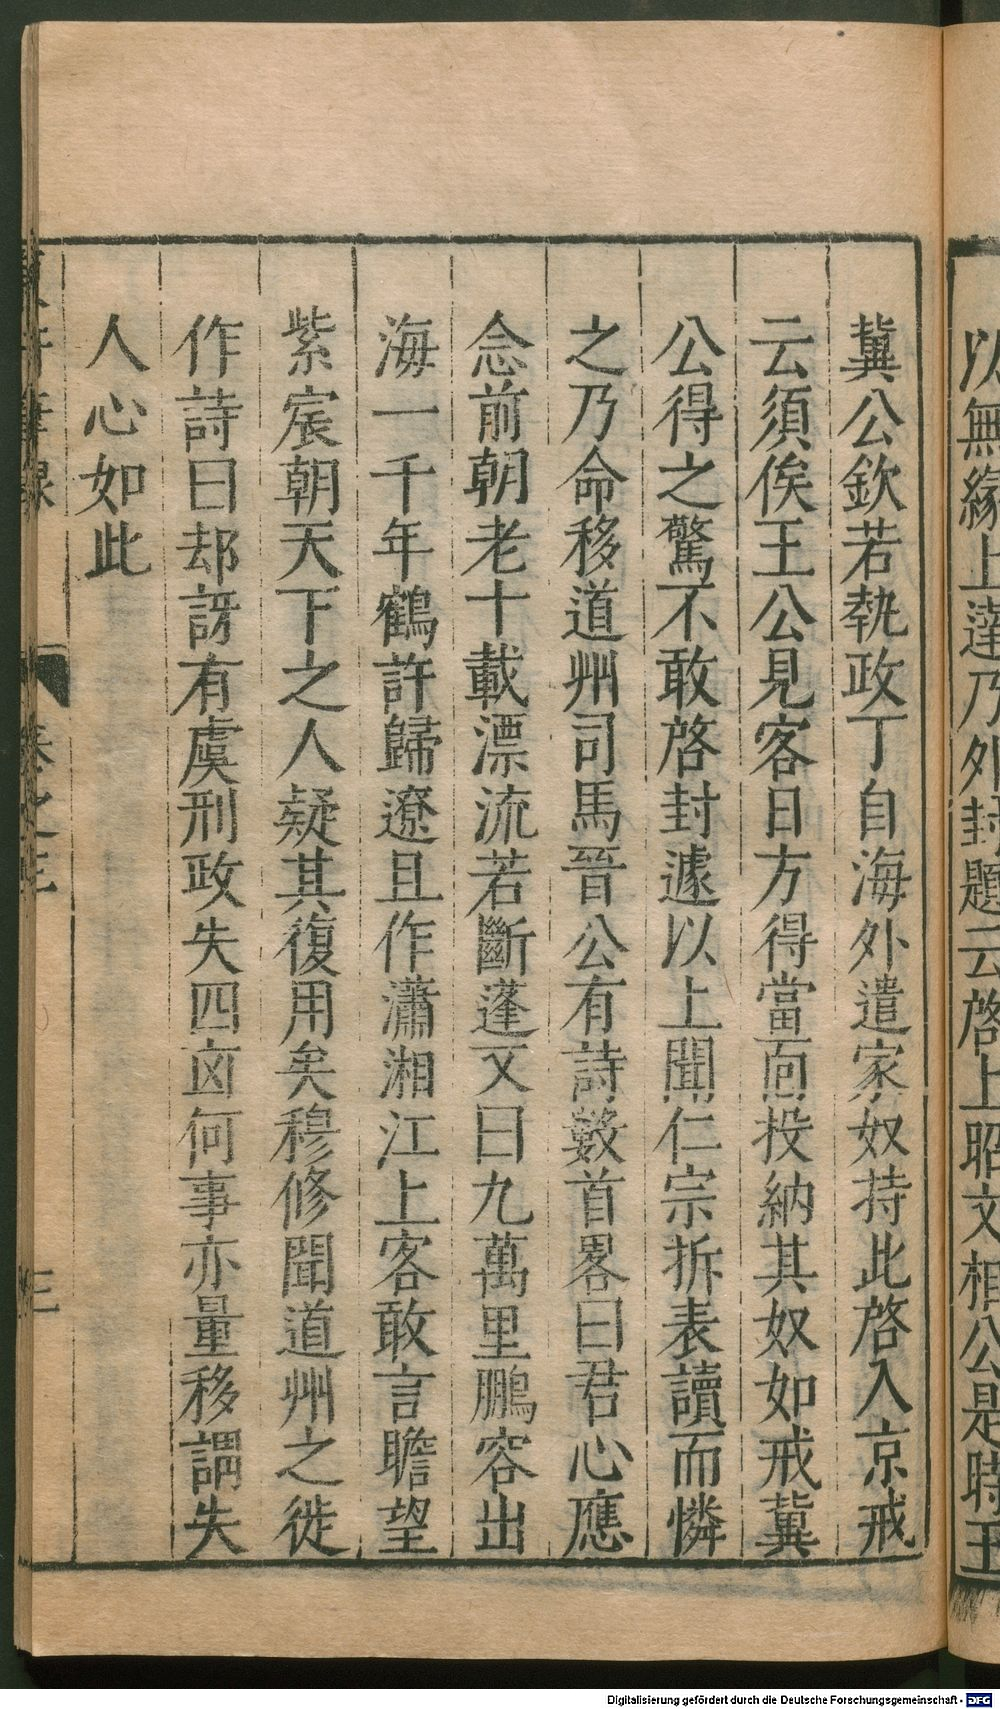 以無緣上達乃外封題云啓上昭文相公是時王
冀公欽若執政丁自海外遣家奴持此啓入京戒
云須俟王公見客日方得當面投納其奴如戒冀
公得之驚不敢啓封遽以上聞仁宗拆表讀而憐
之乃命移道州司馬晉公有詩數首畧曰君心應
念前朝老十載漂流若斷蓬又曰九萬里鵬容出
海一千年鶴許歸遼且作瀟湘江上客敢言瞻望
紫宸朝天下之人疑其復用矣穆修聞道州之徙
作詩曰却訝有虞刑政失四凶何事亦量移謂失
人心如此
卷之三
三
Digitalisierung gefördert durch die Deutsche Forschungsgemeinschaft - DFG